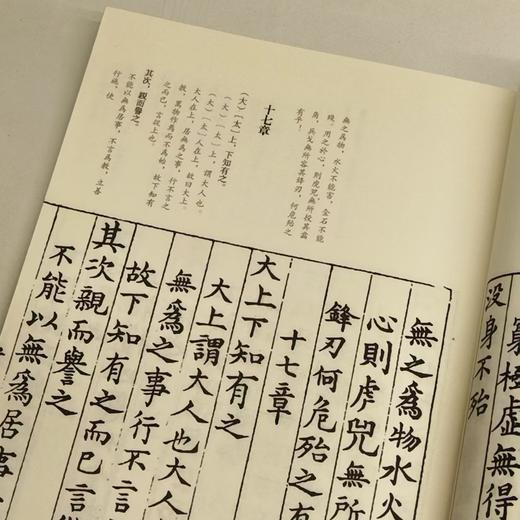 無之爲物，水火不能害，金石不能
殘。用之於心，則虎兕無所投其齒
角，兵戈無所容其鋒刃，何危殆之
有乎！
十七章
（大）〔太〕上，下知有之。
（大）〔太〕上，謂大人也。
（大）〔太〕人在上，故曰大上。
大人在上，居無爲之事，行不言之
教，萬物作焉而不爲始，故下知有
之而已，言從上也。
其次，親而譽之。
不能以無爲居事，不言爲教，立善
行施，使
極虛無得
沒身不殆
無之爲物水火
心則虎兕無所
鋒刃何危殆之
十七章
大上下知有之
大上謂大人也大人
無爲之事行不言
故下知有之而已言
其次親而譽之
不能以無爲居事